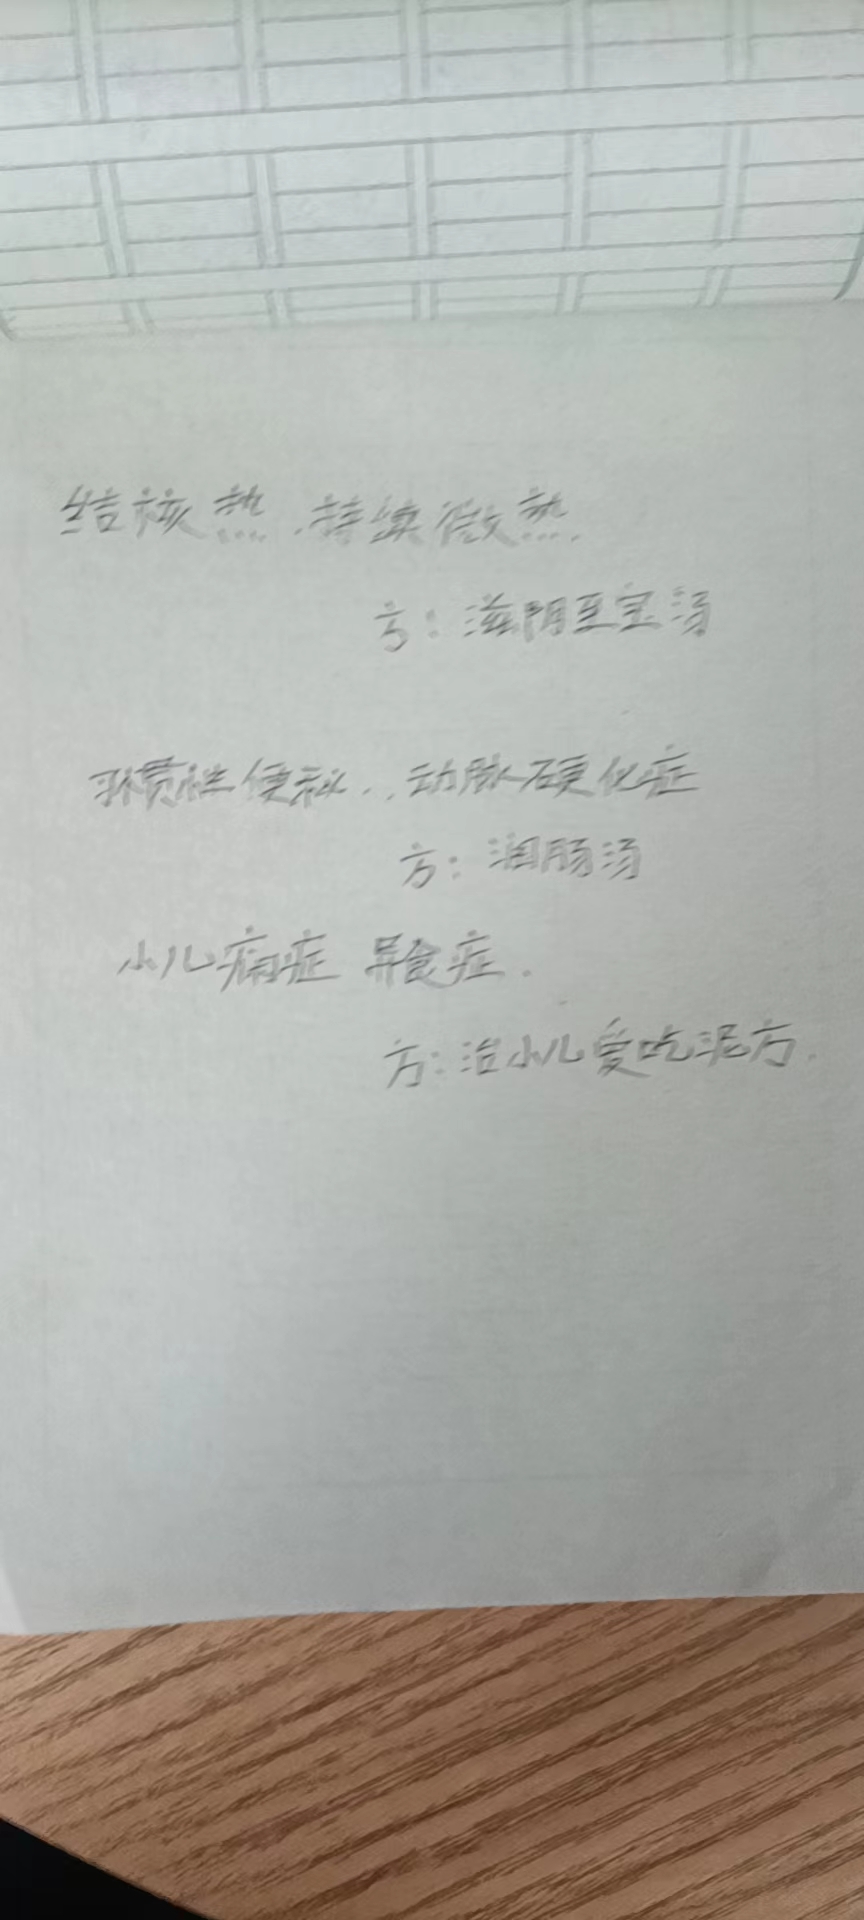 结核热.持续微热.
方:滋阴至宝汤
习惯性便秘..动脉硬化症
方:润肠汤
小儿病症 异食症.
方:治小儿爱吃泥方.